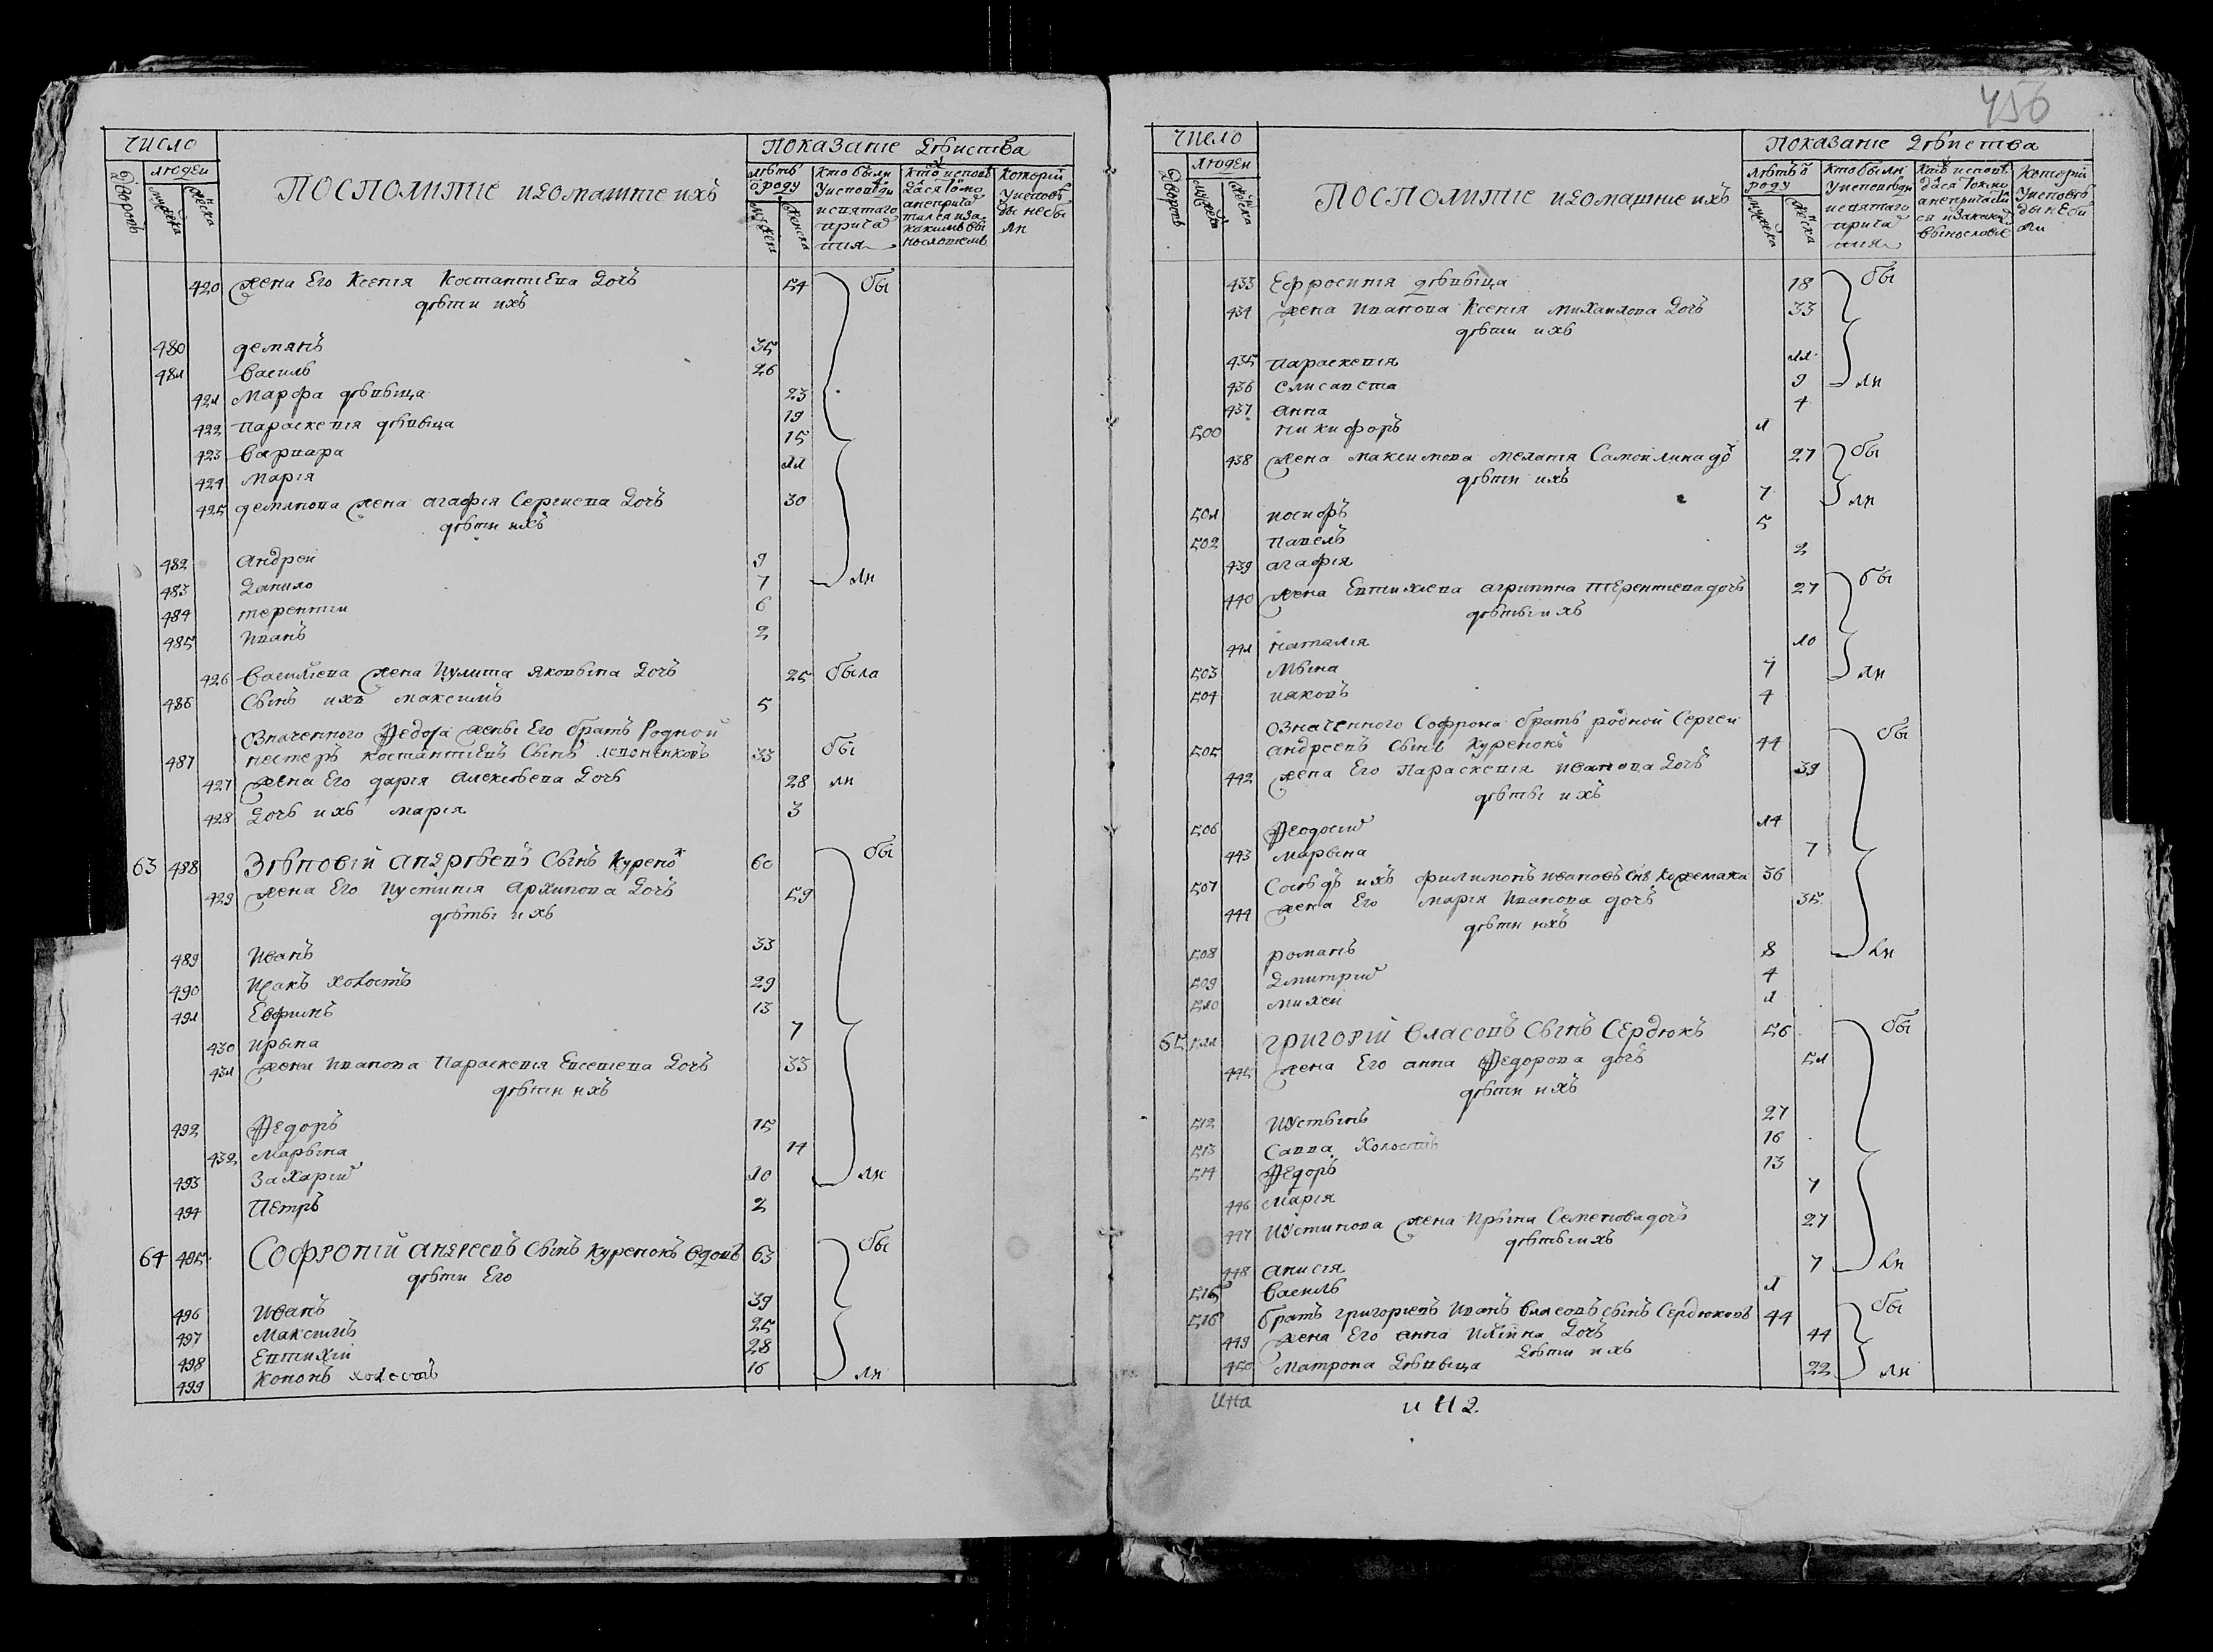 число
показание действа
дворовъ
людеи
мужеска
женска
посполитіе идомашние ихъ
лѣтъ
ѿроду
мужеска
женска
кто были
уисповѣди
исвятаго
прича
стия
кто исповѣ
дался токмо
анеприча
тился иза
какимъ ви
нословіемъ
которіи
уисповѣ
ди небы
ли
420 жена Его Ксенія Костантиева Дочъ 54 бы
дѣти ихъ
480 демянъ 35
481 василь 26
421 Марфа дѣвѣица 23
422 параскевія дѣвѣица 19
423 варвара 15
424 Марія 11
425 демянова жена агафія Сергиева Дочъ 30
дѣти ихъ
482 андреи 9
483 Данило 7 ли
484 терентии 6
485 Иванъ 2
426 василіева жена Иулита яковѣва Дочъ 25 была
486 Сынъ ихъ максимъ 5
означенного Ѳедора жены Его братъ Роднои
487 нестеръ костантиевъ Сынъ 33 бы
427 жена Его дарія алексѣева Дочъ 28 ли
428 Дочъ ихъ марія 3
63 488 Зѣновій андрѣевъ Сынъ Куренокъ 60 бы
429 жена Его Иустинія архипова Дочъ 59
дѣты ихъ
489 Иванъ 33
490 Исакъ холостъ 29
491 Евфимъ 13
430 ирына 7
431 жена иванова Параскевія Евсеиева Дочъ 33
дѣти ихъ
492 Ѳедоръ 15
432 марына 14
493 захарий 10 ли
494 Петръ 2
64 495 Софроній андреевъ Сынъ куренокъ вдовъ 63 бы
дѣти Его
496 Иванъ 39
497 Максимъ 25
498 Евтихіи 28
499 кононъ холостъ 16 ли
456
число
показание действа
дворовъ
людеи
мужеска
женска
посполитіе идомашние ихъ
лѣтъ ѿ
роду
мужеска
женска
кто были
уисповѣди
исвятаго
прича
стия
кто исповѣ
дался токмо
анепричасти
ся изакаким
винословіе
которіи
уисповѣ
ди неби
ли
433 Ефросиния дѣвѣица 18 бы
434 жена иванова Ксенія михаилова Дочъ 33
дѣти ихъ
435 параскевія 11
436 Елисавета 9 ли
437 анна 4
500 никифоръ 1
438 жена максимова мелания Самоилина дочъ 27 бы
дѣти ихъ
501 иосифъ 7 ли
502 павелъ 5
439 агафія 2
440 жена Евтихиева агрипина терентиева дочъ 27 бы
дѣты ихъ
441 наталія 10
503 Мына 7 ли
504 иаковъ 4
означенного Софрона братъ роднои Сергеи
505 андреевъ Сынъ куренокъ 44 бы
442 жена Его Параскевія иванова Дочъ 39
дѣты ихъ
506 Ѳеодосий 14
443 марына 7
507 Сосѣдъ ихъ филимонъ ивановъ Снъ Кожемака 36
444 жена Его марія Иванова дочъ 35
дѣти ихъ
508 романъ 8 ли
509 Дмитрий 4
510 михеи 1
65 511 григорій власовъ Сынъ Сердюкъ 56 бы
445 жена Его анна Ѳедорова дочъ 51
дѣти ихъ
512 Иустынъ 27
513 Савва Холостъ 16
514 Ѳедоръ 13
446 Марія 7
447 Иустинова жена Ирына Семенова дочъ 27
дѣты ихъ
448 анисія 7 ли
515 василь 1
516 братъ григориевъ Иванъ власовъ сынъ Сердюковъ 44 бы
449 жена Его анна Илiина Дочъ 44
Дѣти ихъ
450 Матрона Дѣвѣица 22 ли